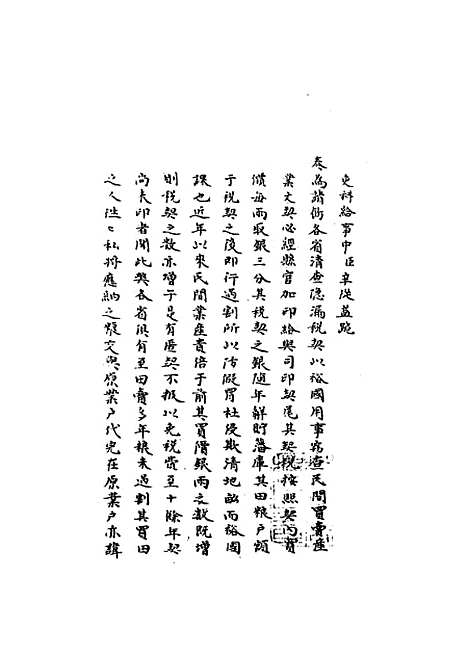 吏科給事中臣辛從益跪
奏為請飭各省清查隱漏稅契以裕國用事竊查民間買賣產
業文契必經縣官加印給與司印契尾其契稅按照契內買
價每兩取銀三分其稅契之銀隨年解貯藩庫其田糧戶額
于稅契之後即行過割所以防假冒杜侵欺清地畝而裕國
課也近年以來民間業產貴倍于前其買價銀兩之數既增
則稅契之數亦增于是有匿契不報以免稅費至十餘年契
尚未印者聞此弊各省俱有至田賣多年糧未過割其買田
之人往往私將應納之糧交與原業戶代完在原業戶亦諱